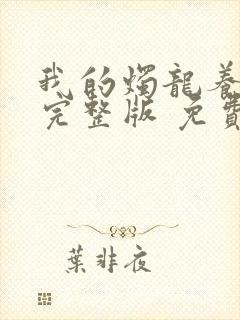 我的燭龍養
完整版 免費
葉非夜